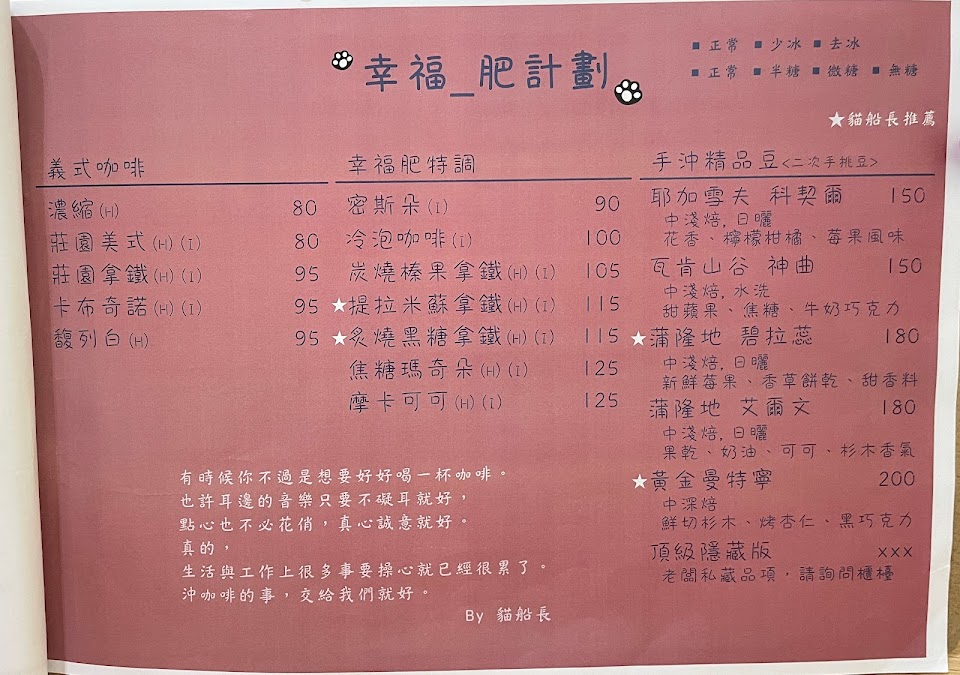 幸福_肥計劃
■ 正常 ■ 少冰 ■ 去冰
■ 正常 ■ 半糖 ■ 微糖 ■ 無糖
★貓船長推薦
義式咖啡
濃縮(H) 80
莊園美式(H)(I) 80
莊園拿鐵(H)(I) 95
卡布奇諾(H)(I) 95
馥列白(H) 95
幸福肥特調
密斯朵(I) 90
冷泡咖啡(I) 100
炭燒榛果拿鐵(H)(I) 105
★提拉米蘇拿鐵(H)(I) 115
★炙燒黑糖拿鐵(H)(I) 115
焦糖瑪奇朵(H)(I) 125
摩卡可可(H)(I) 125
手沖精品豆<二次手挑豆>
耶加雪夫 科契爾 150
中淺焙,日曬
花香、檸檬柑橘、莓果風味
瓦肯山谷 神曲 150
中淺焙,水洗
甜蘋果、焦糖、牛奶巧克力
★蒲隆地 碧拉蕊 180
中淺焙,日曬
新鮮莓果、香草餅乾、甜香料
蒲隆地 艾爾文 180
中淺焙,日曬
果乾、奶油、可可、杉木香氣
★黃金曼特寧 200
中深焙
鮮切杉木、烤杏仁、黑巧克力
頂級隱藏版 xxx
老闆私藏品項,請詢問櫃檯
有時候你不過是想要好好喝一杯咖啡。
也許耳邊的音樂只要不礙耳就好,
點心也不必花俏,真心誠意就好。
真的,
生活與工作上很多事要操心就已經很累了。
沖咖啡的事,交給我們就好。
By 貓船長